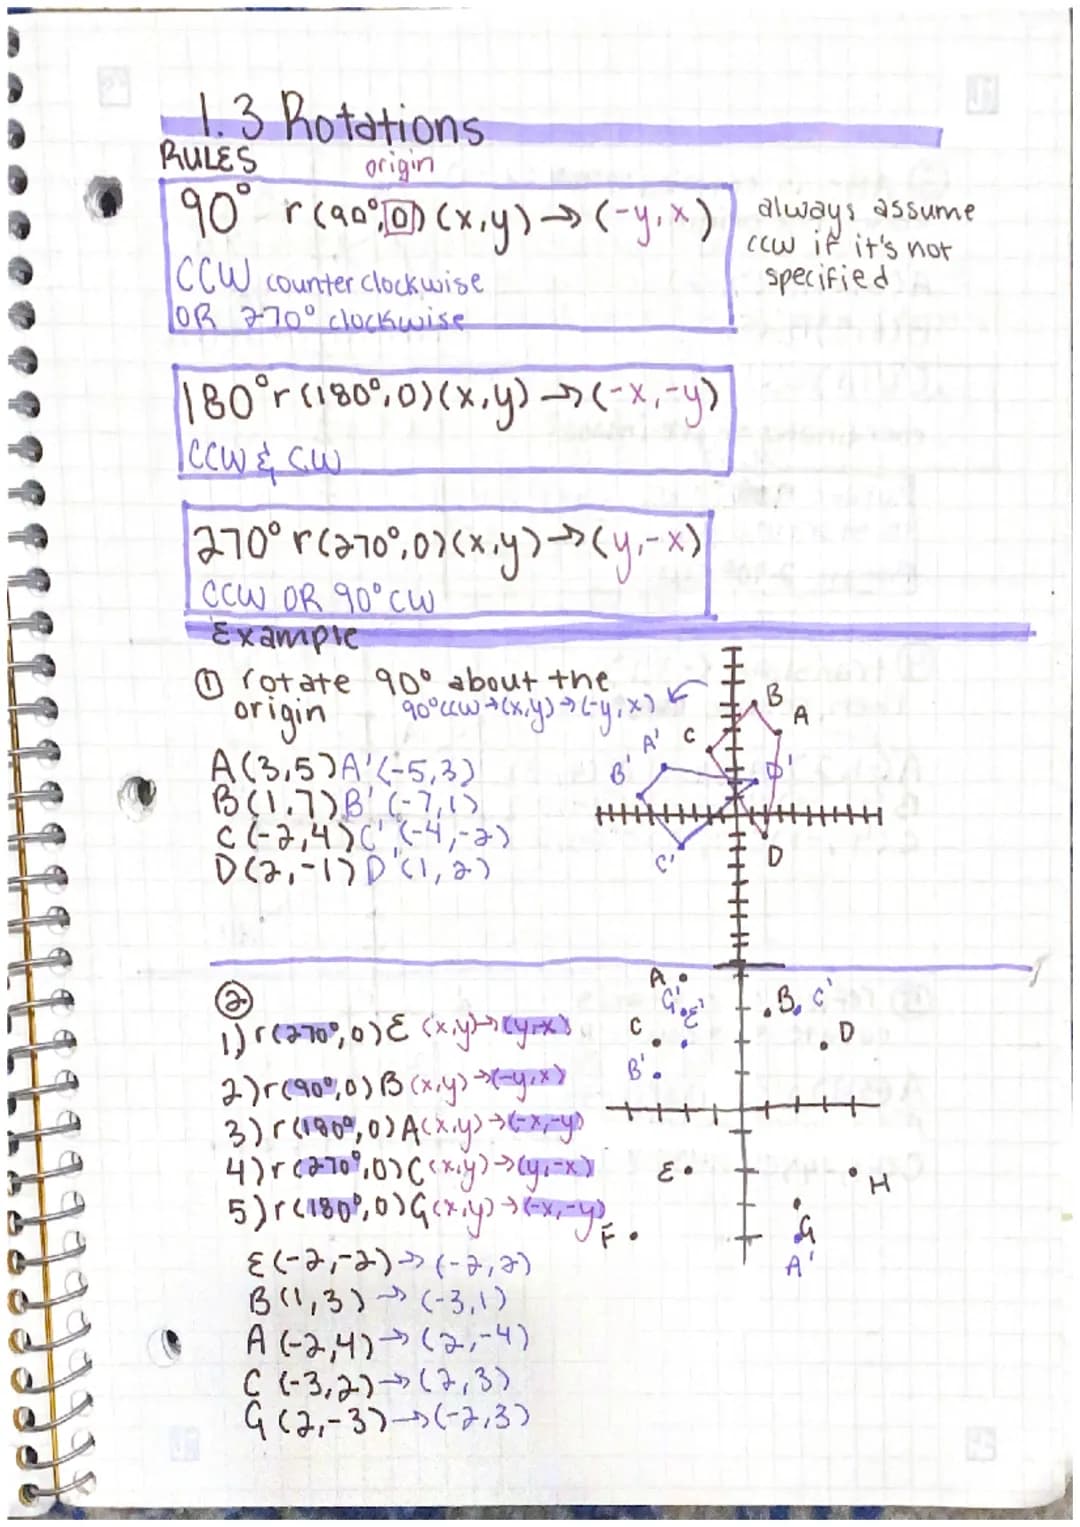 1.3 Rotations
RULES
origin
90° r(90°,0)(x,y)→(-y,x)
CCW counter clockwise
OR 270° clockwise
always assume
ccw if it's not
specified
180° r(180°,0)(x,y)→(-x,-y)
CCW & CW
270° r(270°,0)(x,y)→(y,-x)
CCW OR 90° CW
Example
① rotate 90° about the
origin 90°ccw→(x,y)→(-y,x)
A(3,5) A'(-5,3)
B(1,7) B'(-7,1)
C(-2,4) C'(-4,-2)
D(2,-1) D'(1,2)
B
A
C
A'
B'
D'
C'
D
②
1) r(270°,0)E (x,y)→(y,-x)
2) r(90°,0)B (x,y)→(-y,x)
3) r(180°,0)A(x,y)→(-x,-y)
4) r(270°,0)C(x,y)→(y,-x)
5) r(180°,0)G(x,y)→(-x,-y)
E(-2,-2)→(-2,2)
B(1,3)→(-3,1)
A(-2,4)→(2,-4)
C(-3,2)→(2,3)
G(2,-3)→(-2,3)
A
G'
E'
B
C'
C
D
B'
E
H
F
G
A'